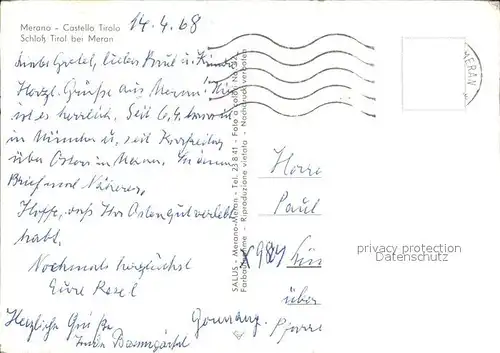 Merano - Castello Tirolo
Schloß Tirol bei Meran
14.4.68
Liebe Gretel, lieber Paul u. Kinder
Herzl. Grüße aus Meran! Hier
ist es herrlich. Seit 6.4. bin ich
in München u. seit Karfreitag
über Ostern in Meran. In einem
Brief mal Näheres.
Hoffe, daß Ihr Ostern gut verlebt
habt.
Nochmals herzlichst
Eure Resel
Herzliche Grüße
Baumgärtel
SALUS - Merano-Meran - Tel. 23 8 41 - Foto a colori No.
Farbaufnahme - Riproduzione vietata - Nachdruck verboten
MERAN
Herrn
Paul
über
Pfarr
Germany.
privacy protection
Datenschutz